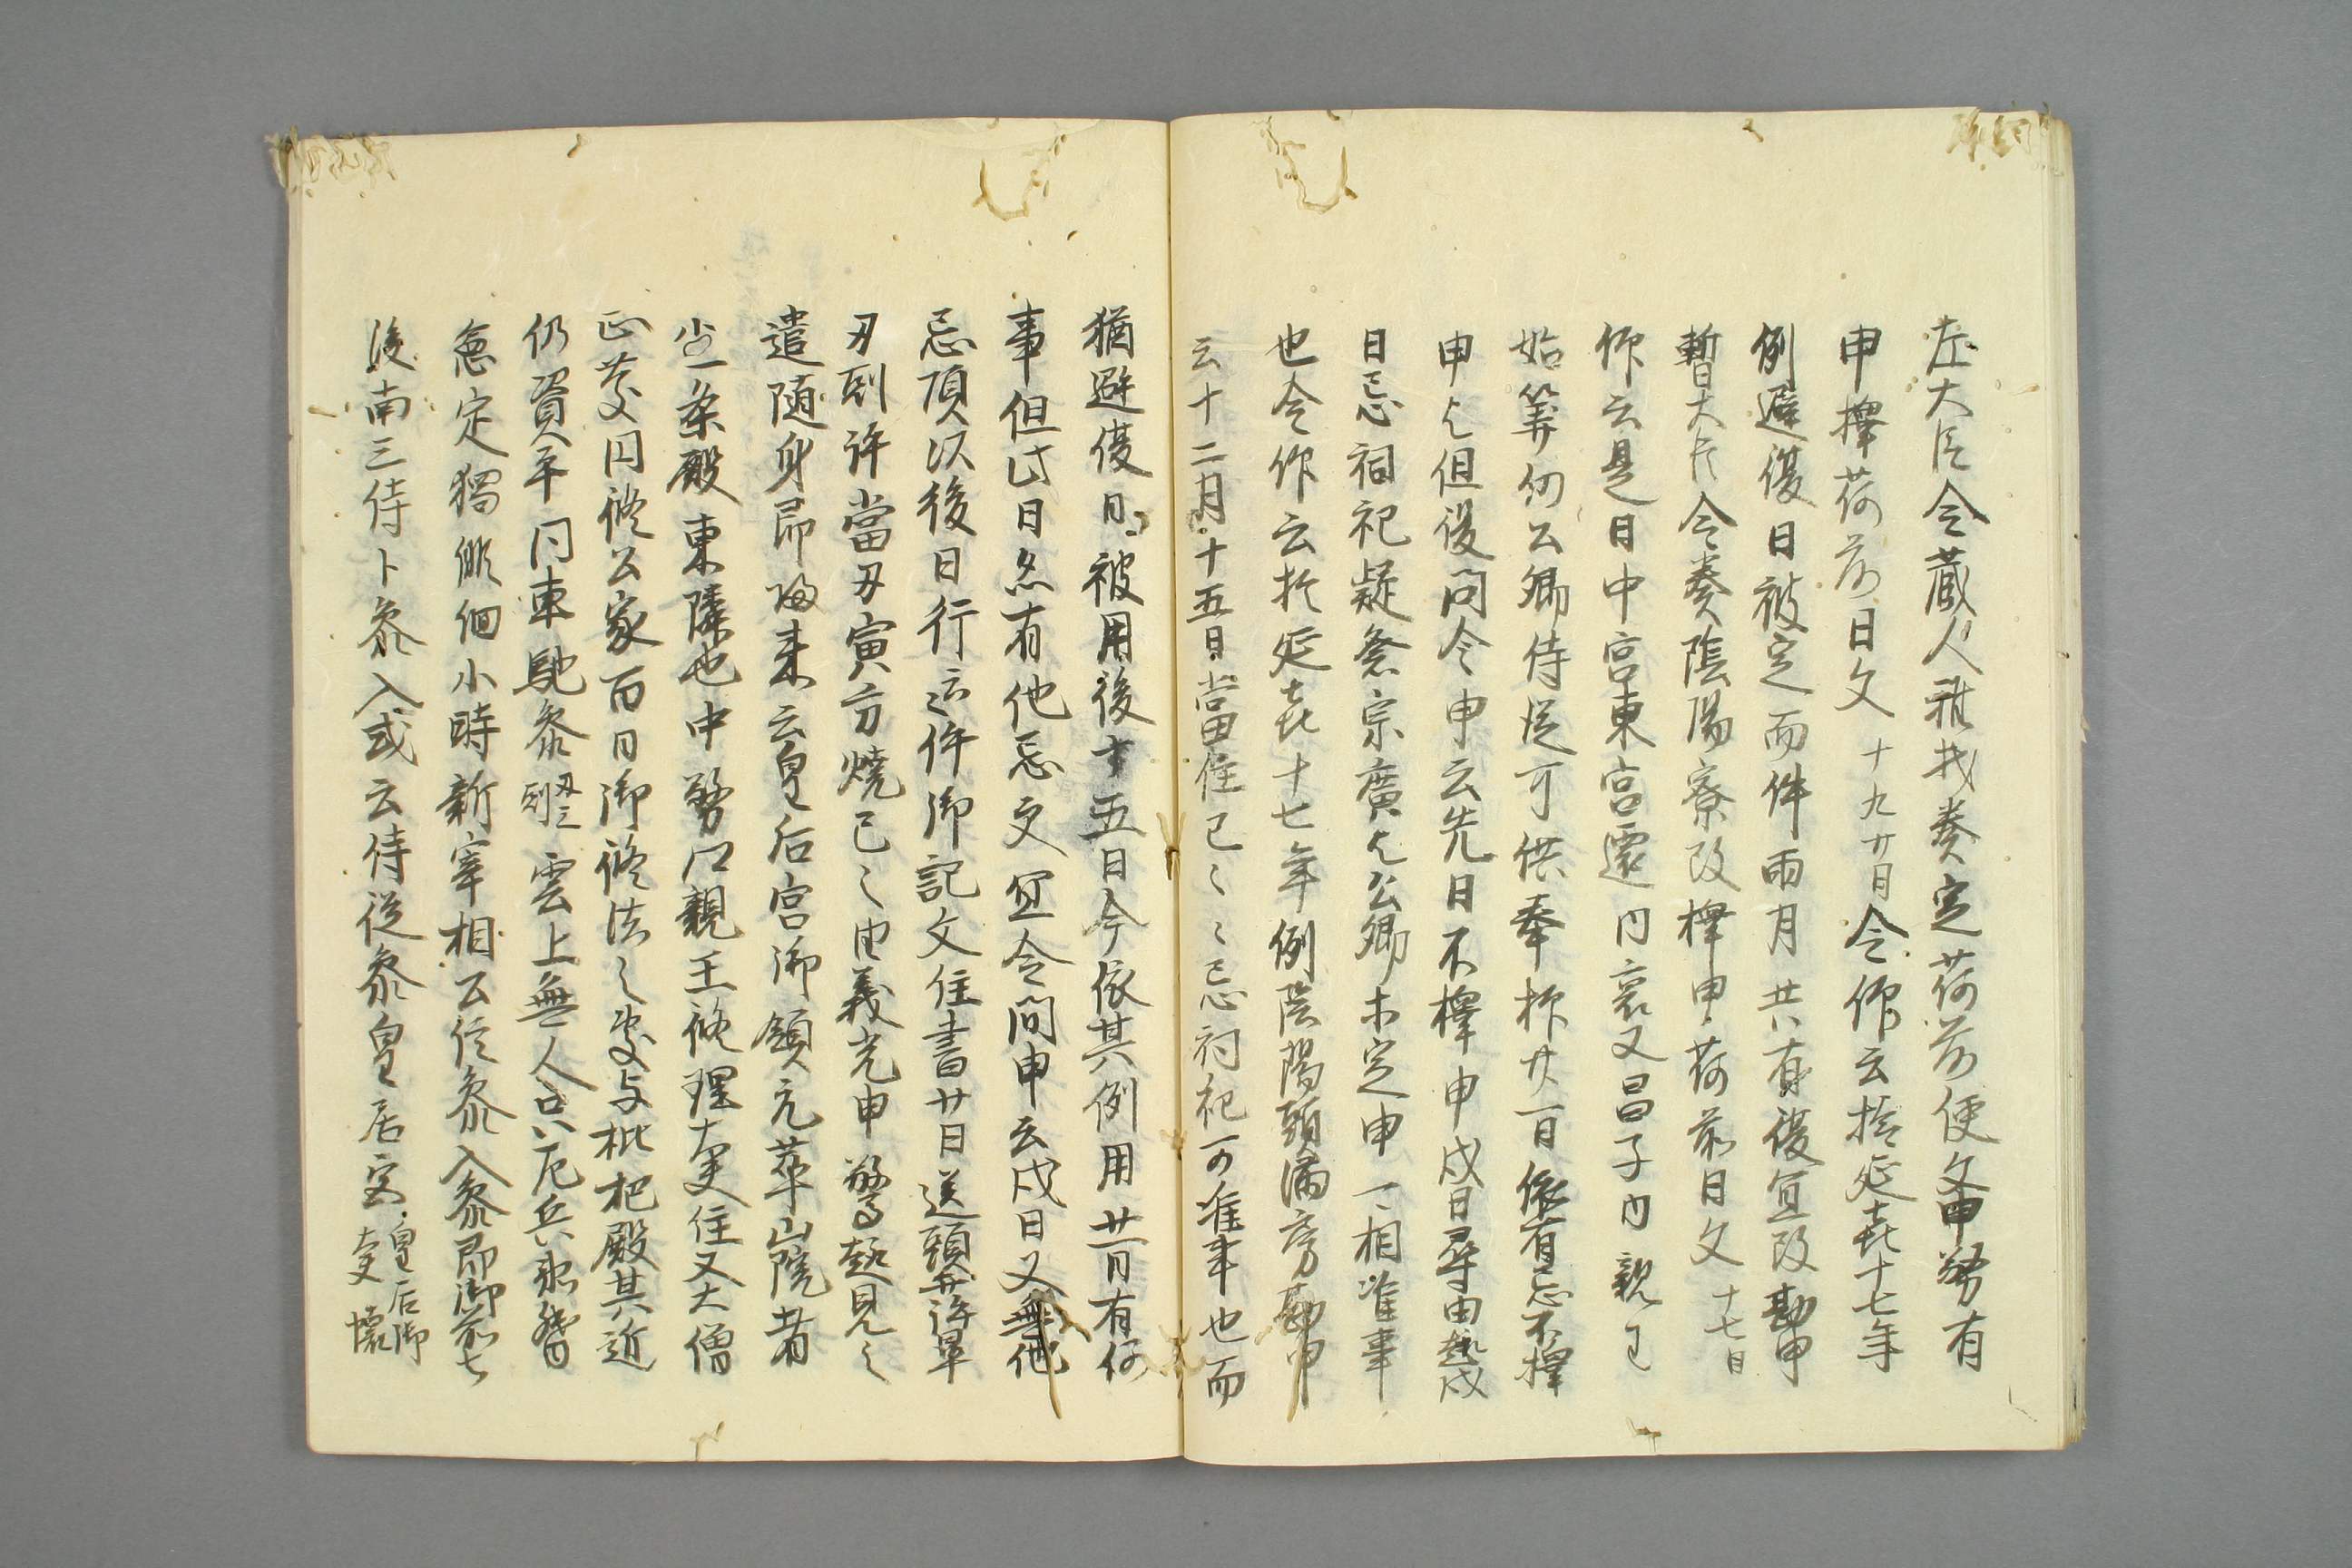 左大臣令蔵人雅材奏定荷前便文申務有
申擇荷前日文十九廿日令仰云於延喜十七年
例避復日被定而件両月共有復宜改勘申
暫大臣令奏陰陽寮改擇申荷前日文十七日
仰云是日中宮東宮還内裏又昌子内親王
始笄何公卿侍従可供奉抑廿一日依有忌不擇
申也但復問令申云先日不擇申戌日尋由熱戌
日忌祠祀疑祭宗廣也公卿未定申一相准事
也令仰云於延喜十七年例陰陽頭満房勘申
云十二月十五日當住已々々忌祠祀可准事也而
猶避復日被用後十五日今依其例用廿一日有何
事但此日名有他忌文宜令問申云戌日又無他
忌須以後日行云件御記文住書廿日送頭許畢
丑刻許當丑寅方燒亡々由義光申驚起見之
遣随身即帰来云皇后宮御領元華山院者
小一条殿東隣也中務口親王修理大夫住又大僧
正慶円修公家百日御修法之處与枇杷殿其近
仍資平同車馳参丑三刻雲上無人只左兵衛督
急定獨俳徊小時新宰相公信参入参即御前七
後南三侍卜参入或云侍従参皇居宮皇后御
大夫懐